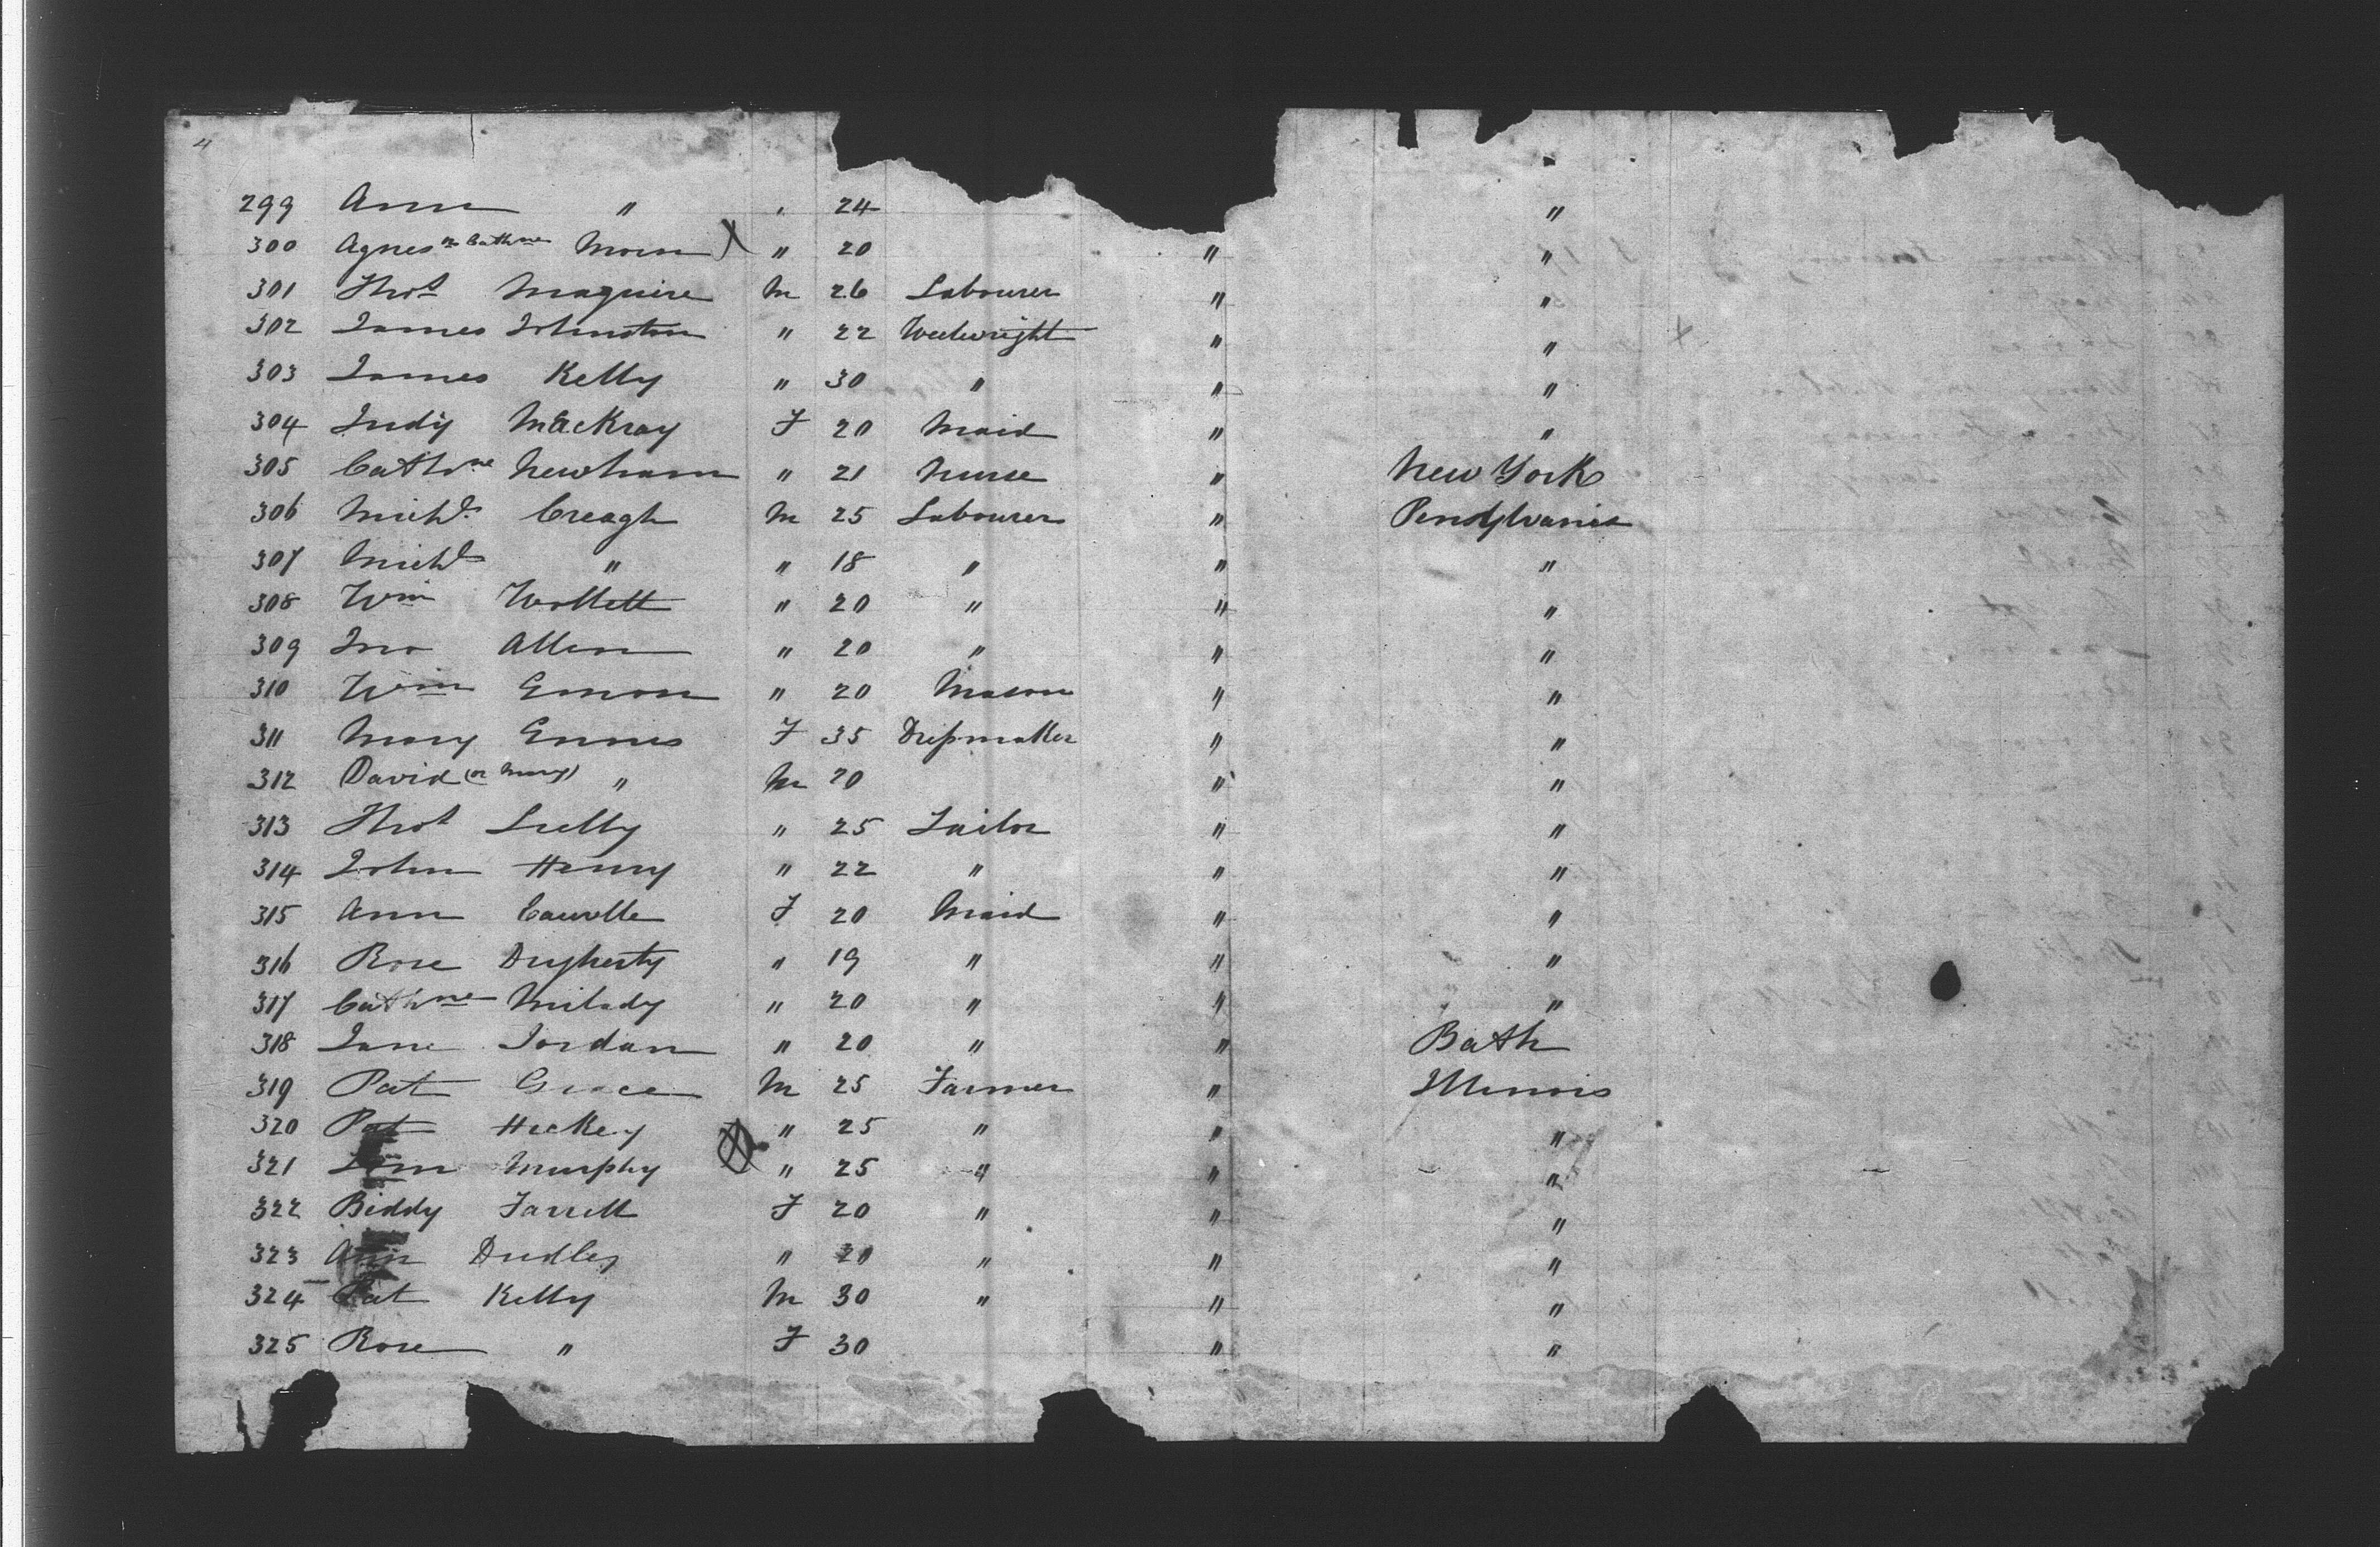 4
299 Ann " " 24 "
300 Agnes or Cathne Moun " 20 " "
301 Thos Maguire M 26 Labourer " "
302 James Johnston " 22 Weelwright " "
303 James Kelly " 30 " " "
304 Judy MacKray F 20 Maid " "
305 Cathne Newham " 21 Nurse " New York
306 Michl Creagh M 25 Labourer " Pensylvania
307 Michl " " 18 " " "
308 Wm Wollett " 20 " " "
309 Jno Allen " 20 " " "
310 Wm Emon " 20 Mason " "
311 Mary Ennis F 35 Dressmaker " "
312 David (or Mary) " M 20 " "
313 Thos Lully " 25 Tailor " "
314 John Henry " 22 " " "
315 Ann F 20 Maid " "
316 Rose Dogherty " 19 " " "
317 Cathne Milady " 20 " " "
318 Jane Jordan " 20 " " Bath
319 Pat Grace M 25 Farmer " Illinois
320 Pat Hickey " 25 " " "
321 Murphy " 25 " " "
322 Biddy Farrell F 20 " " "
323 Ann Dudley " 20 " " "
324 Pat Kelly M 30 " " "
325 Rose " F 30 " "